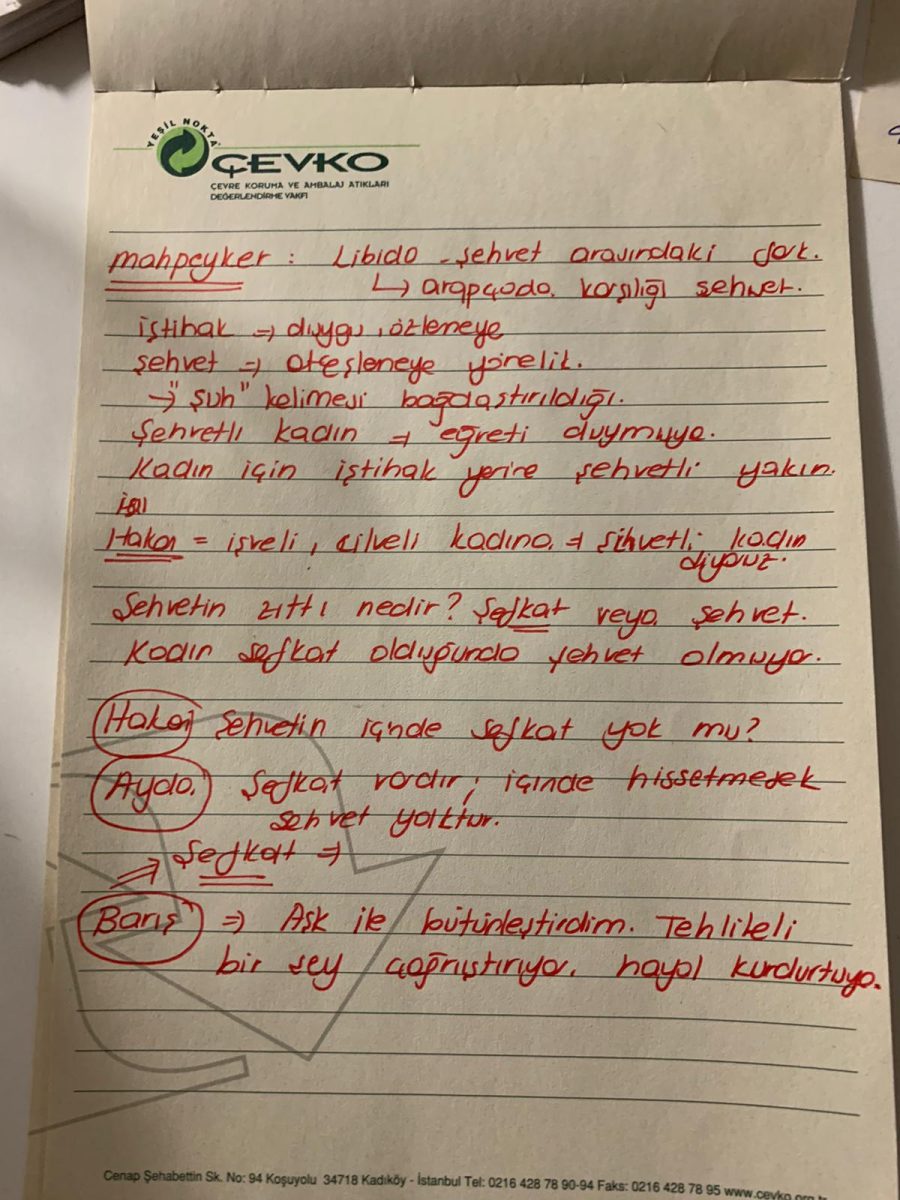 YEŞİL NOKTA
ÇEVKO
ÇEVRE KORUMA VE AMBALAJ ATIKLARI
DEĞERLENDİRME VAKFI
mahpeyker : Libido - şehvet arasındaki fark.
↳ arapçada karşılığı şehvet.
iştihak ⇒ duygu, özleneye
şehvet ⇒ ateşleneye yönelik.
→ "şuh" kelimesi bağdaştırıldığı.
Şehvetli kadın → eğreti duymuyo.
Kadın için iştihak yerine şehvetli yakın.
Hakan = işveli, cilveli kadına ⇒ şihvetli kadın
diyoruz.
Şehvetin zıttı nedir? Şefkat veya şehvet.
Kadın şefkat olduğunda şehvet olmuyor.
Hakan Şehvetin içinde şefkat yok mu?
Ayda. Şefkat vardır; içinde hissetmesek
şehvet yoktur.
⇒ Şefkat ⇒
Barış ⇒ Aşk ile bütünleştirdim. Tehlikeli
bir şey çağrıştırıyor. hayal kurdurtuyo.
Cenap Şehabettin Sk. No: 94 Koşuyolu 34718 Kadıköy - İstanbul Tel: 0216 428 78 90-94 Faks: 0216 428 78 95 www.cevko.org.tr